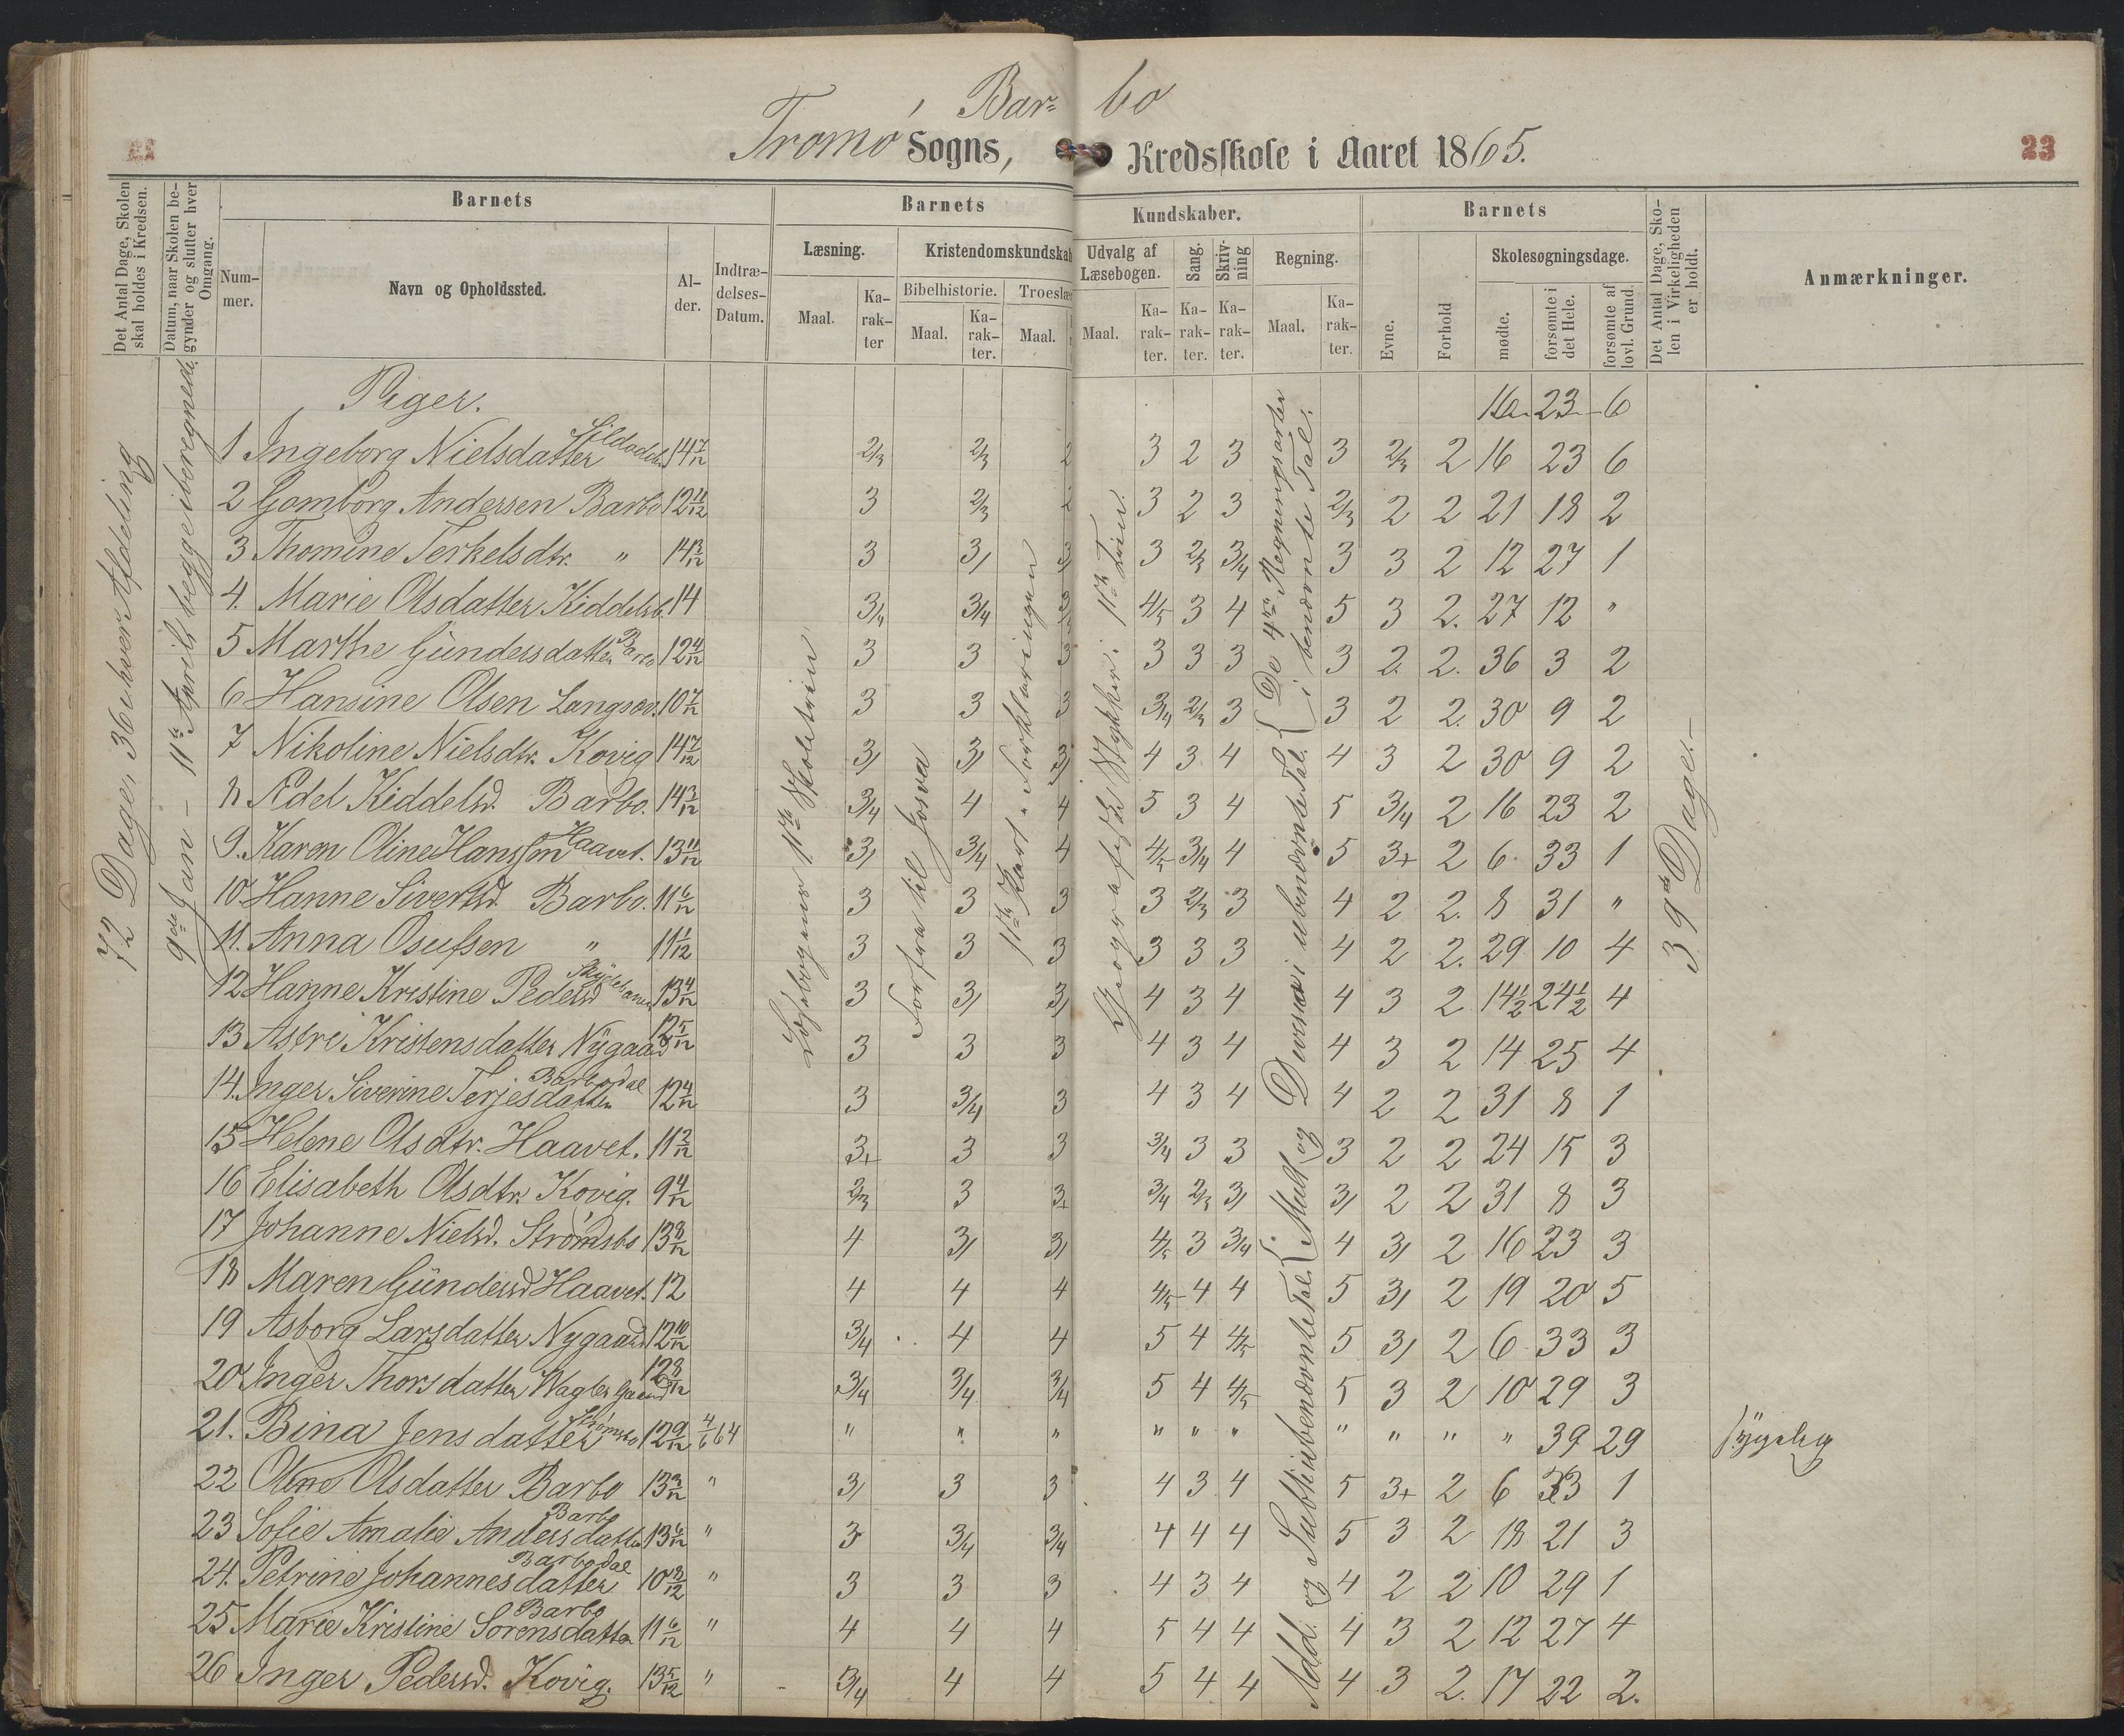 Bar= bo
Tromø Sogns, Kredsskole i Aaret 1865.
22
23
Det Antal Dage, Skolen skal holdes i Kredsen.
Datum, naar Skolen begynder og slutter hver Omgang.
Barnets
Num-mer.
Navn og Opholdssted.
Al-der.
Indtræ-delses-Datum.
Barnets Kundskaber.
Læsning.
Maal.
Ka-rak-ter
Kristendomskundskab
Bibelhistorie.
Maal.
Ka-rak-ter.
Troeslær
Maal.
Udvalg af Læsebogen.
Maal.
Ka-rak-ter.
Sang.
Ka-rak-ter.
Skriv-ning
Ka-rak-ter.
Regning.
Maal.
Ka-rak-ter.
Barnets
Evne.
Forhold
Skolesøgningsdage.
mødte.
forsømte i det Hele.
forsømte af lovl. Grund.
Det Antal Dage, Sko-len i Virkeligheden er holdt.
Anmærkninger.
72 Dage, 36 i hver Afdeling
9de Jan – 11te April begge iberegnede
Læsebogens 1ste Skoletrin
Forfra til Josva
1ste Part. Forklaringen
Geografiske Stykker i 1ste Trin.
De 4re Regningsarter i benævnte Tal.
Mult. og Division i ubenævnte Tal.
Add. og Subt. i ubenævnte Tal.
39 Dage.–
Piger. 16 23 6
1 Ingeborg Nielsdatter 14 7/12 2/3 2/3 2 3 2 3 3 2/3 2 16 23 6
2 Gomborg Andersen Barbo 12 11/12 3 2/3 2 3 2 3 2/3 2 2 21 18 2
3 Thomine Terkelsdtr. " 14 3/12 3 3/ 3/ 3 2/3 3/4 3 3 2 12 27 1
4. Marie Olsdatter Kiddelsb. 14 3/4 3/4 3/4 4/5 3 4 5 3 2. 27 12 "
5 Marthe Gündersdatter Barbo 12 4/12 3 3 3 3 3 3 3 2. 2. 36 3 2
6 Hansine Olsen Langsæv. 10 7/12 3 3 3 3/4 2/3 3 3 2 2. 30 9 2
7 Nikoline Nielsdtr. Kovig 14 7/12 3/ 3/ 3/ 4 3 4 4 3 2 30 9 2
8 Ædel Kiddelsd. Barbo. 14 3/12 3/4 4 4 5 3 4 5 3/4 2 16 23 2
9. Karen Oline Hanssen Haavet. 13 11/12 3/ 3/4 4 4/5 3/4 4 5 3+ 2 6 33 1
10 Hanne Sivertsd. Barbo. 11 6/12 3 3 3 3 2/3 3 4 2 2. 8 31 "
11. Anna Osufsen " 11 1/12 3 3 3 3 3 3 4 2 2. 29 10 4
12 Hanne Kristine Pedersd 13 4/12 3 3/ 3/ 4 3 4 4 3 2 14½ 24½ 4
13 Astri Kristensdatter Nÿgaard 12 5/12 3 3 3 4 3 4 4 3 2 14 25 4
14. Inger Siverine Terjesdatter Barbodal 12 4/12 3 3/4 3 4 3 4 4 2 2 31 8 1
15 Helene Olsdtr. Haavet. 11 2/12 3+ 3 3 3/4 3 3 3 2 2 24 15 3
16 Elisabeth Olsdtr. Kovig. 9 4/12 2/3 3 3+ 3/4 2/3 3/ 3/ 2 2 31 8 3
17 Johanne Nielsd. Strømsbo 13 8/12 4 3/ 3/ 4/5 3 3/4 4 3/ 2 16 23 3
18 Maren Gündersd Haavet. 12 4 4 4 4/5 4 4 5 3/ 2 19 20 5
19 Asborg Larsdatter Nygaard 12 10/12 3/4 4 4 5 4 4/5 5 3/ 2 6 33 3
20 Inger Thorsdatter 12 8/12 3/4 3/4 3/4 5 4 4/5 5 3 2 10 29 3
21. Bina Jensdatter Strømsbo 12 9/12 4/6 64 " " " " " " " " " " 39 29 sÿgelig
22 Oline Olsdatter Barbo 13 3/12 " 3/ 3 3 4 3 4 5 3+ 2 6 33 1
23 Sofie Amalie Andersdatter Barbo 13 6/12 " 3 3/4 3/4 4 4 4 5 3 2 18 21 3
24. Petrine Johannesdatter Barbodal 10 8/12 " 3 3 3 4 3 4 4 2 2 10 29 1
25 Marie Kristine Sorensdatter Barbo 11 6/12 " 4 4 4 5 4 4 4 3 2 12 27 4
26 Inger Pedersd. Kovig. 13 5/12 " 3/4 4 4 5 4 4 4 3 2. 17 22 2.